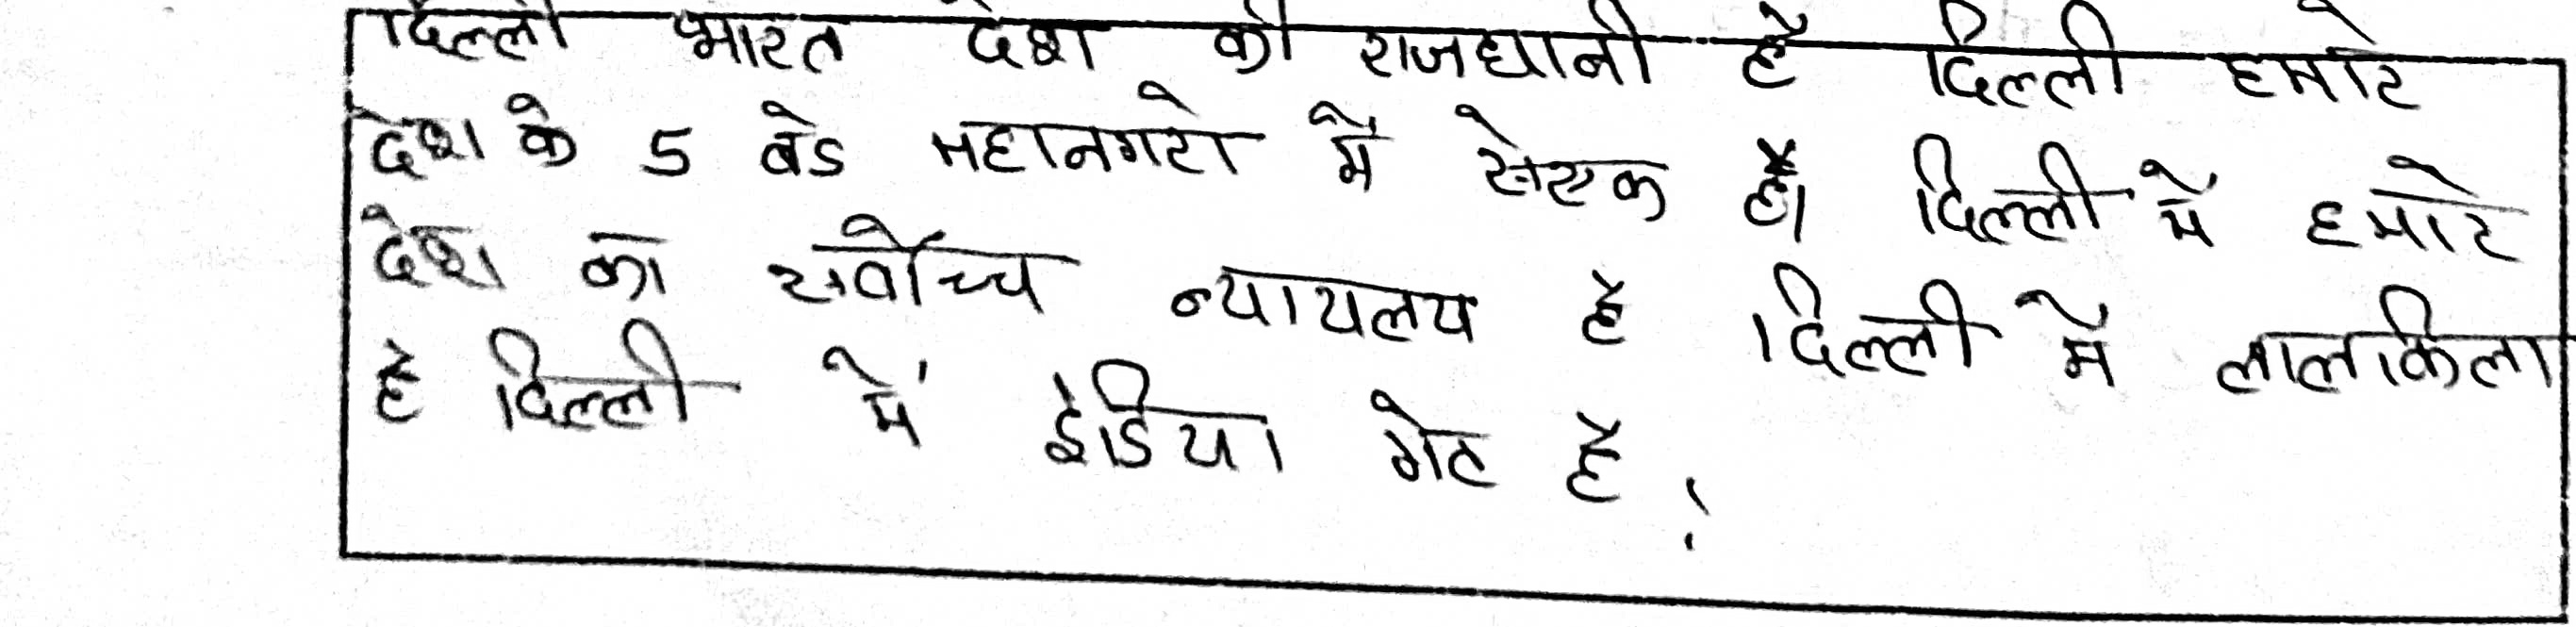 दिल्ली भारत देश की राजधानी है दिल्ली हमारे
देश के 5 बडे महानगरो में से एक है। दिल्ली में हमारे
देश का सर्वोच्च न्यायलय है दिल्ली में लालकिला
है दिल्ली में इंडिया गेट है।